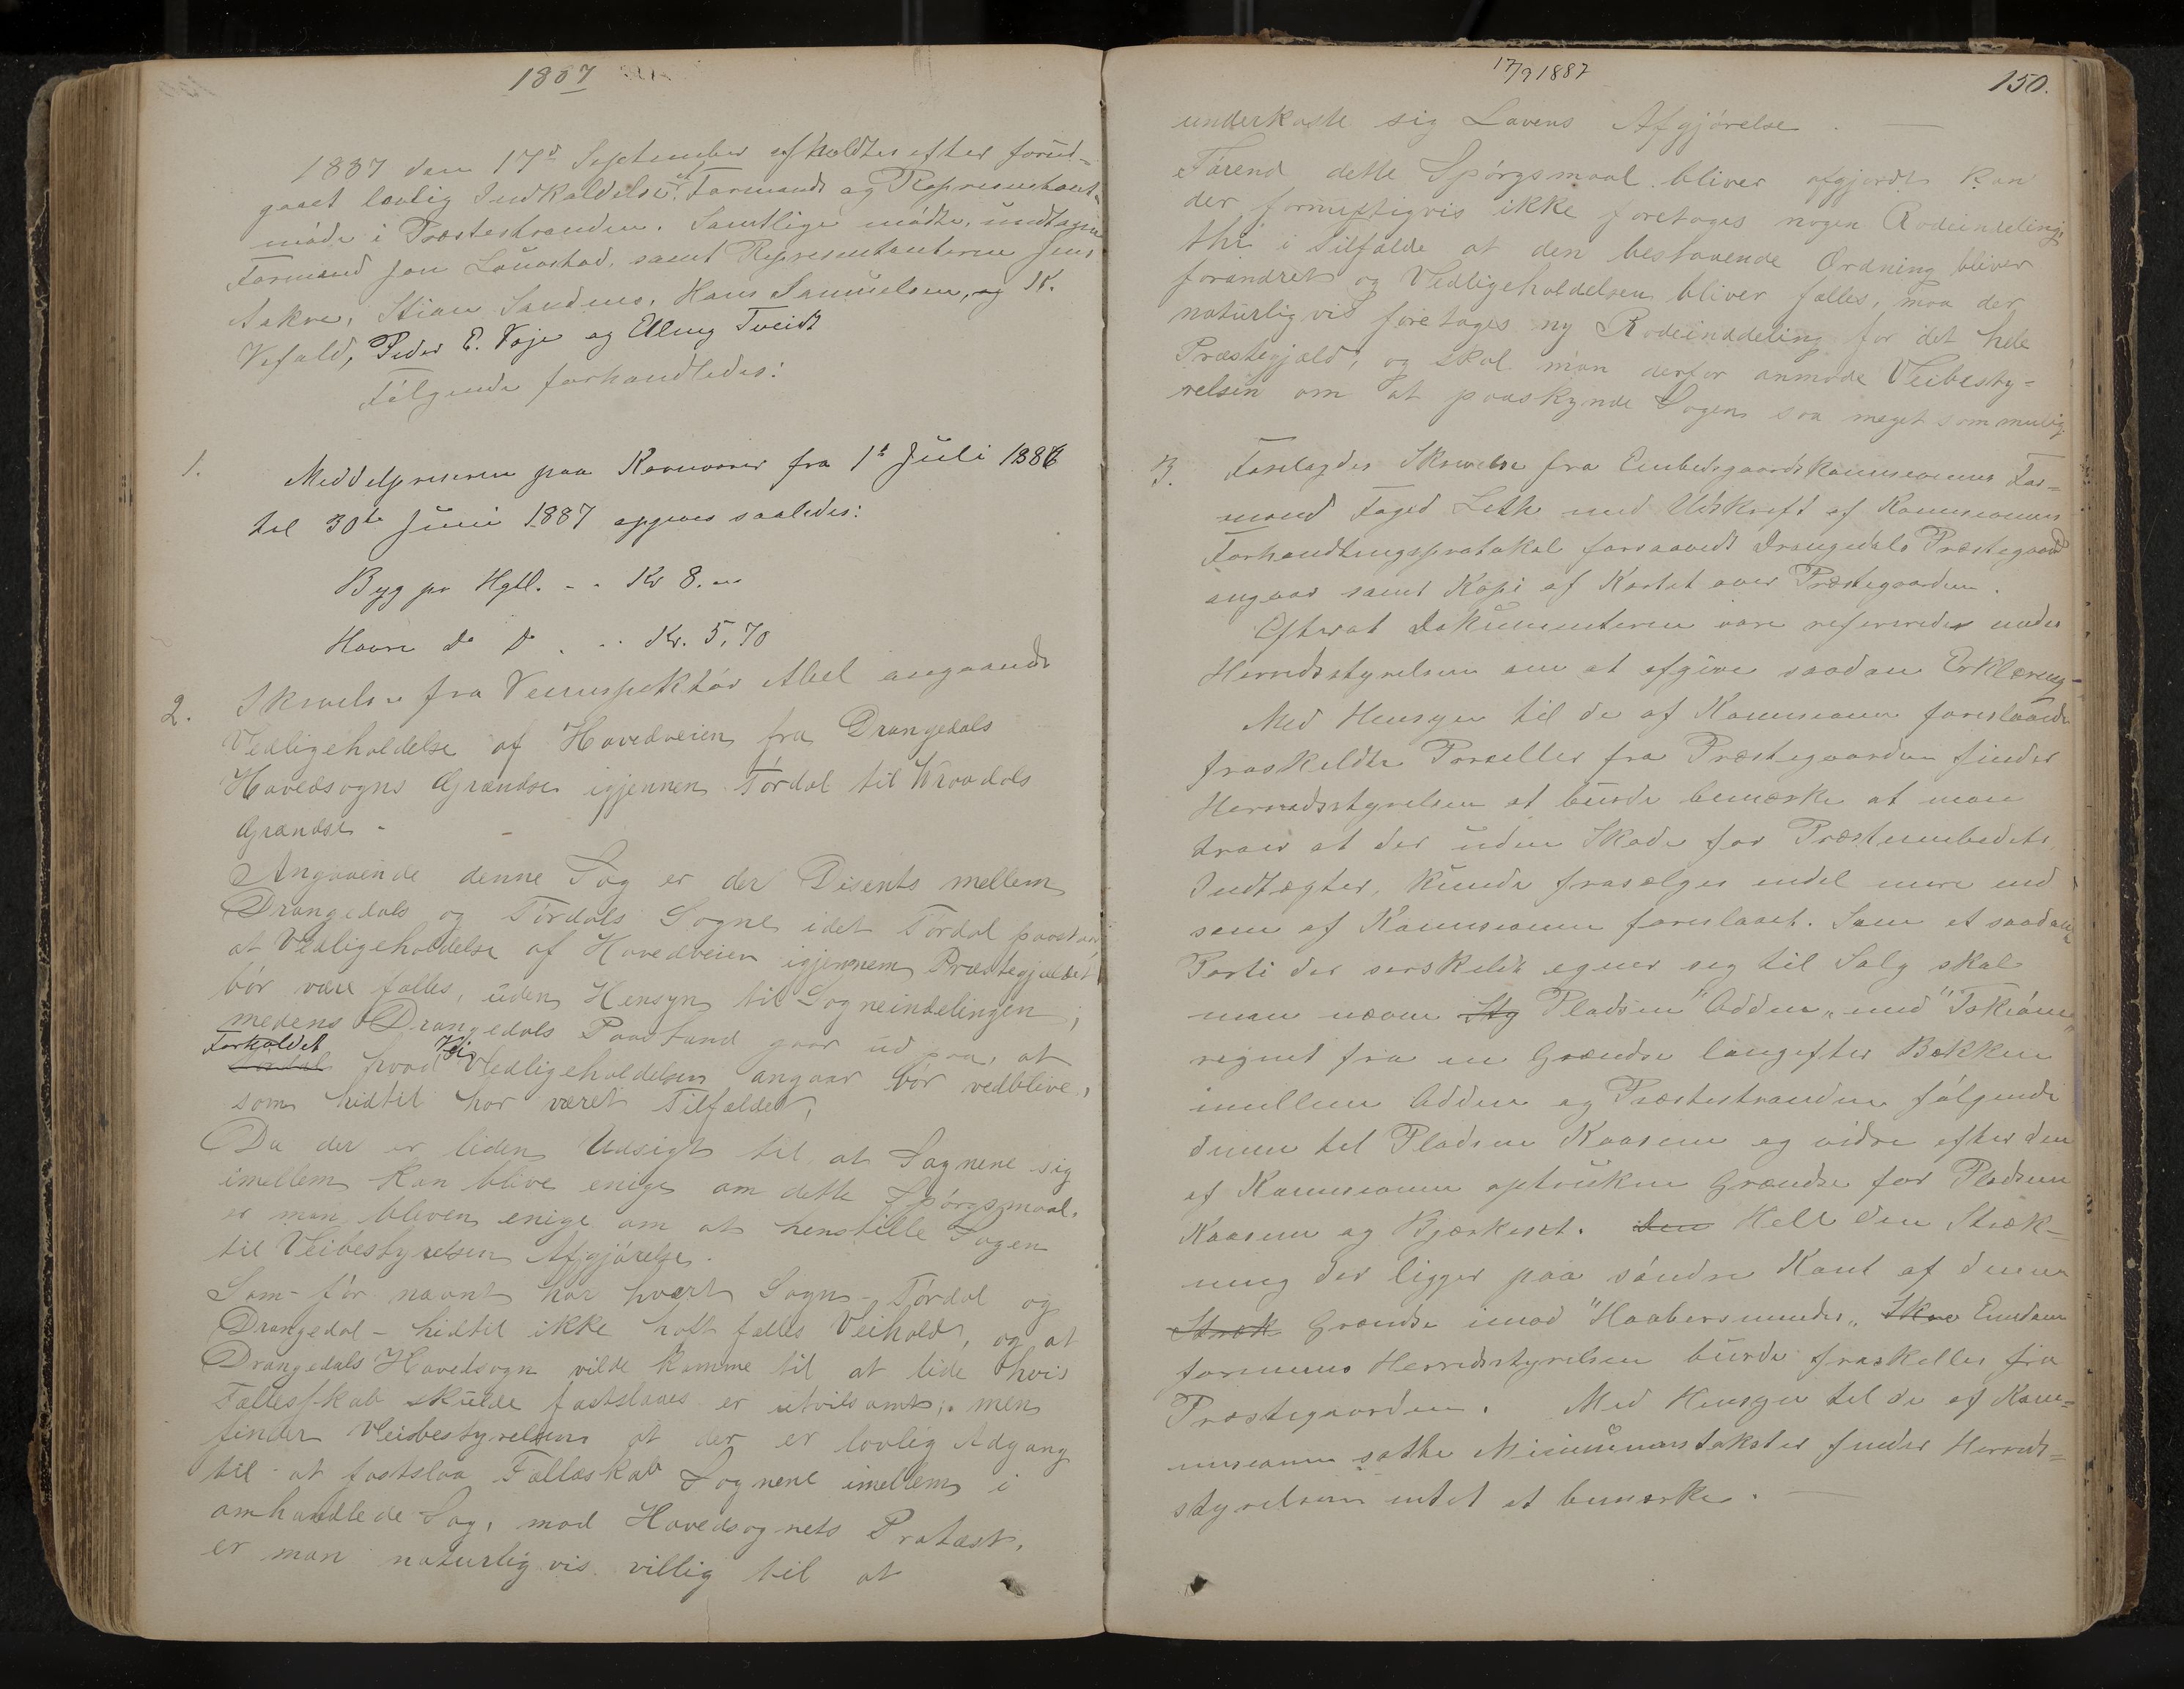 1887
1887 den 17d September afholdtes efter forud-
gaaet lovlig Indkaldelse et Formands og Repræsentant-
møde i Præstestranden. Samtlige mødte, undtagen
Formand Jon Lauvstad, samt Repræsentanterne Jens
Aakre, Stian Sandnes, Hans Samuelsen, og K.
Vefald, Peder E. Voje og Elling Tveidt
Følgende forhandledes:
1. Middelpriserne paa Kornvarer fra 1ste Juli 1886
til 30te Juni 1887 opgives saaledes:
Byg pr Hgtl. - . Kr 8. 00
Havre do do . . . Kr. 5,70
2. Skrivelse fra Veiinspektør Abel angaaende
Vedligeholdelse af Hovedveien fra Drangedals
Hovedsogns Grændse igjennem Tørdal til Kraadals
Grændse -
Angaaende denne Sag er der Disents mellem
Drangedals og Tørdals Sogne idet Tørdal paastaar
at Vedligeholdelse af Hovedveien igjennem Præstegjeldet
bør være fælles, uden Hensyn til Sogneindelingen,
medens Drangedals Paastand gaar ud paa, at
Forholdet hvad Vei Vedligeholdelsen angaar bør vedblive,
som hidtil har været Tilfældet,
Da der er liden Udsigt til at Sognene sig
imellem kan blive enige om dette Spørgsmaal,
er man bleven enige om at henstille Sagen
til Veibestyrelsen Afgjørelse.
Som - før nævnt har hvært Sogn - Tørdal og
Drangedal - hidtil ikke haft fælles Veihold, og at
Drangedals Hovedsogn vilde komme til at lide hvis
Fællesskab skulde fastslaaes er utvilsomt; men
finder Veibestyrelsen at der er lovlig Adgang
til at fastslaa Fællesskab Sognene imellem i
omhandlede Sag, mod Hovedsognets Protæst,
er man naturligvis villig til at
17/9 1887
150.
underkaste sig Lovens Afgjørelse . —
Førend dette Spørgsmaal bliver afgjordt kan
der fornuftigvis ikke foretages nogen Rodeindeling,
thi i Tilfælde at den bestaaende Ordning bliver
forandret og Vedligeholdelsen bliver fælles, maa der
naturligvis foretages ny Rodeinddeling for det hele
Præstegjæld, og skal man derfor anmode Veibesty-
relsen om at paaskynde Sagen saa meget som mulig.
3. Forelagdes Skrivelse fra Embedsgaardskommisionens For-
mand Foged Leth med Udskrift af Kommisionens
Forhandlingsprotokol forsaavidt Drangedals Præstegaard
angaar samt Kopi af Kartet over Præstegaarden.
Efterat Dokumenterne vare refererede under
Herredsstyrelsen om at afgive saadan Erklæring -
Med Hensyn til de af Kommisionen foreslaaede
fraskildte Parceller fra Præstegaarden finder
Herredsstyrelsen at burde bemærke at man
troer at der uden Skade for Præsteembedets
Indtægter, kunde frasælges endel mere end
som af Kommisionen foreslaaet. Som et saadant
Parti der særskildt egner sig til Salg skal
man nævne Stg Pladsen "Odden" med "
regnet fra en Grændse langefter Bækken
imellem Odden og Præstestranden følgende
denne til Pladsen Kaasene og vidre efter den
af Kommisionen optrukne Grændse for Pladsene
Kaasene og Bjærkeset. den Hele den Stræk-
ning der ligger paa søndre Kant af denne
Stræk Grændse imod "Haabersmundes" Skov Eiendom
formener Herredsstyrelsen burde fraskilles fra
Præstegaarden. Med Hensyn til de af Kom-
misionen satte Minimumstakster finder Herreds-
styrelsen intet at bemærke. —